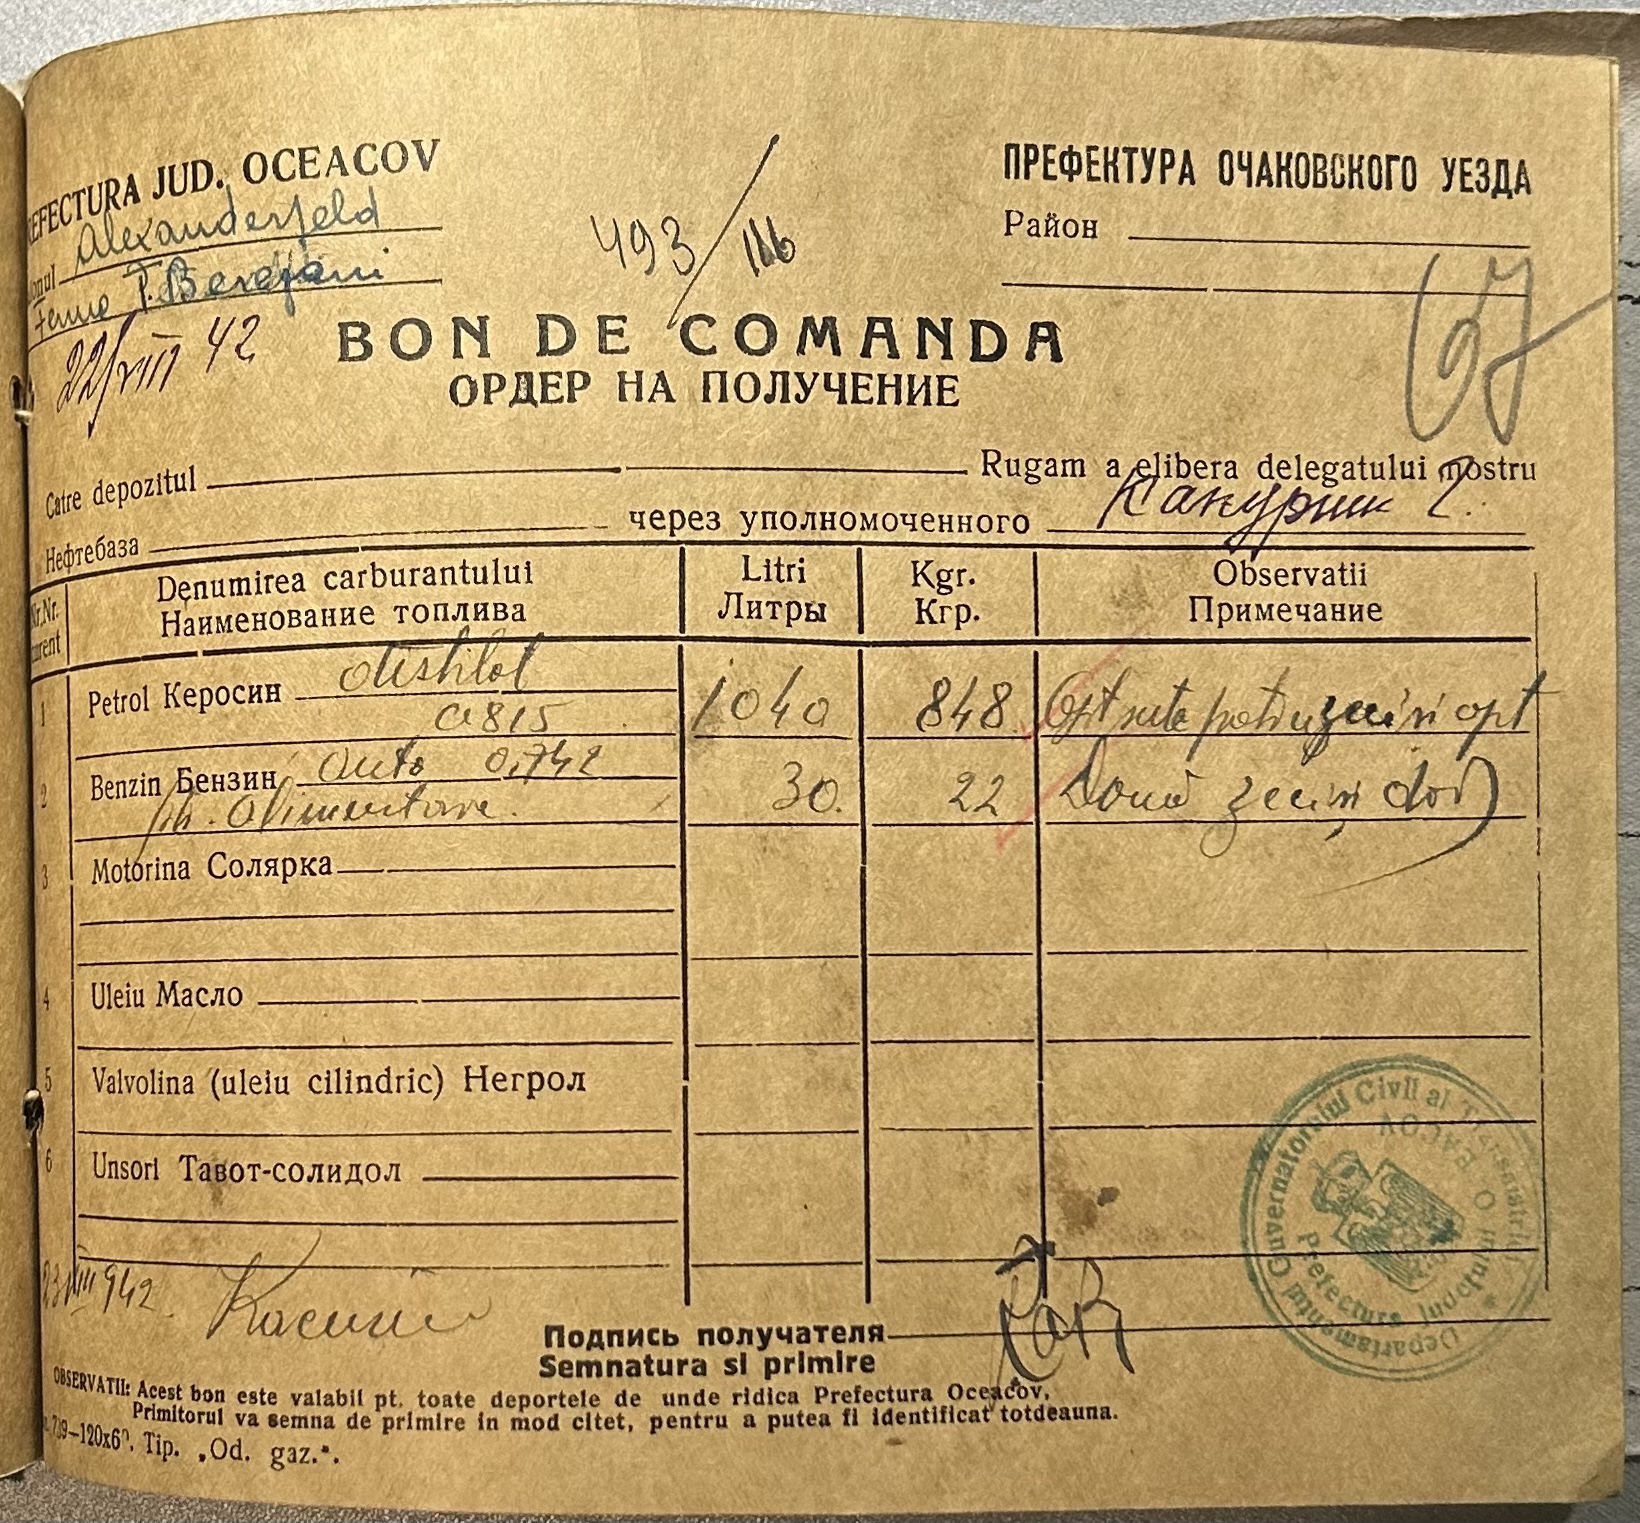 PREFECTURA JUD. OCEACOV
Alexanderfeld
Ferme T. Berejani
22/VIII 42
493/116
ПРЕФЕКТУРА ОЧАКОВСКОГО УЕЗДА
Район
67
BON DE COMANDA
ОРДЕР НА ПОЛУЧЕНИЕ
Catre depozitul Rugam a elibera delegatului nostru
Нефтебаза через уполномоченного
Nr. Nr. curent Denumirea carburantului Litri Kgr. Observatii
Наименование топлива Литры Кгр. Примечание
1 Petrol Керосин distilat 1040 848 Opt sute patruzeci si opt
0815
2 Benzin Бензин auto 0,742 30. 22 Două zeci si doi
ptr. Alimentare.
3 Motorina Солярка
4 Uleiu Масло
5 Valvolina (uleiu cilindric) Негрол
6 Unsori Тавот-солидол
23/VIII 942.
Подпись получателя
Semnatura si primire
Departamentul Guvernatorului Civil al Transnistriei
Prefectura Județului OCEACOV
OBSERVATII: Acest bon este valabil pt. toate deportele de unde ridica Prefectura Oceacov.
Primitorul va semna de primire in mod citet, pentru a putea fi identificat totdeauna.
739—120x6". Tip. „Od. gaz.".